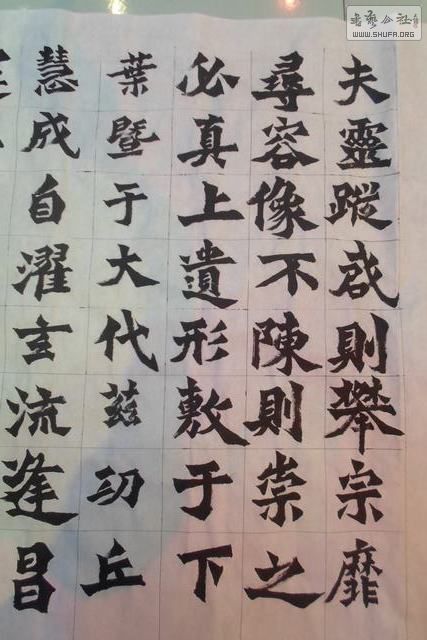 夫靈蹤啟則攀宗靡
尋容像不陳則崇之
必真上遺形敷于下
葉暨于大代茲功丘
慧成自濯玄流邊昌
书艺公社
WWW.SHUFA.ORG